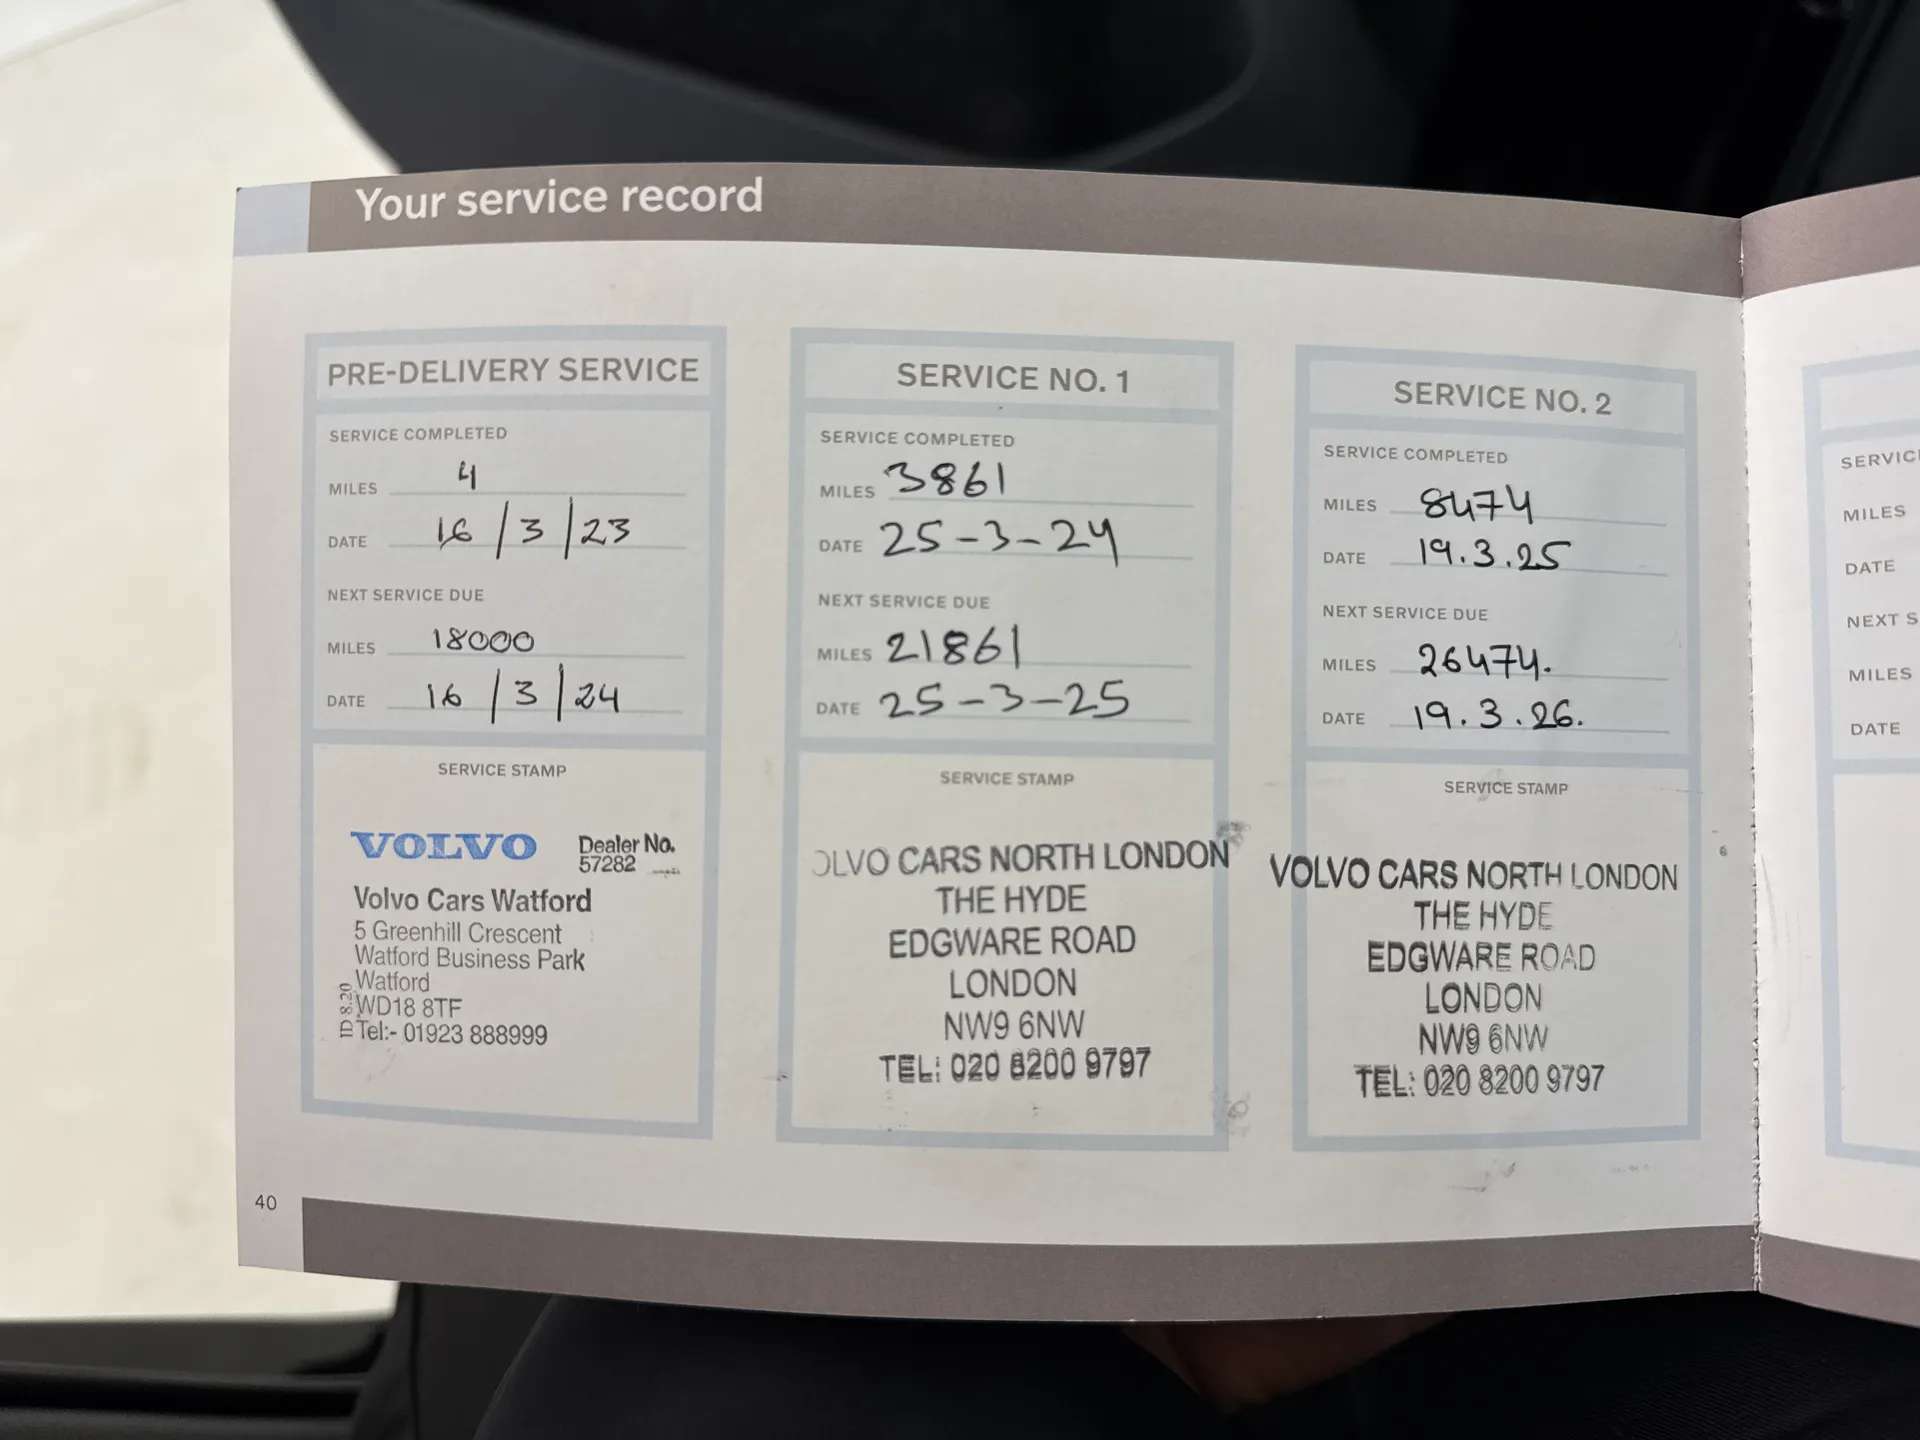 Your service record
PRE-DELIVERY SERVICE
SERVICE COMPLETED
MILES 4
DATE 16/3/23
NEXT SERVICE DUE
MILES 18000
DATE 16/3/24
SERVICE STAMP
VOLVO Dealer No.
57282
Volvo Cars Watford
5 Greenhill Crescent
Watford Business Park
Watford
WD18 8TF
Tel:- 01923 888999
ID 8.20
SERVICE NO. 1
SERVICE COMPLETED
MILES 3861
DATE 25-3-24
NEXT SERVICE DUE
MILES 21861
DATE 25-3-25
SERVICE STAMP
OLVO CARS NORTH LONDON
THE HYDE
EDGWARE ROAD
LONDON
NW9 6NW
TEL: 020 8200 9797
SERVICE NO. 2
SERVICE COMPLETED
MILES 8474
DATE 19.3.25
NEXT SERVICE DUE
MILES 26474.
DATE 19.3.26.
SERVICE STAMP
VOLVO CARS NORTH LONDON
THE HYDE
EDGWARE ROAD
LONDON
NW9 6NW
TEL: 020 8200 9797
40
SERVIC
MILES
DATE
NEXT S
MILES
DATE